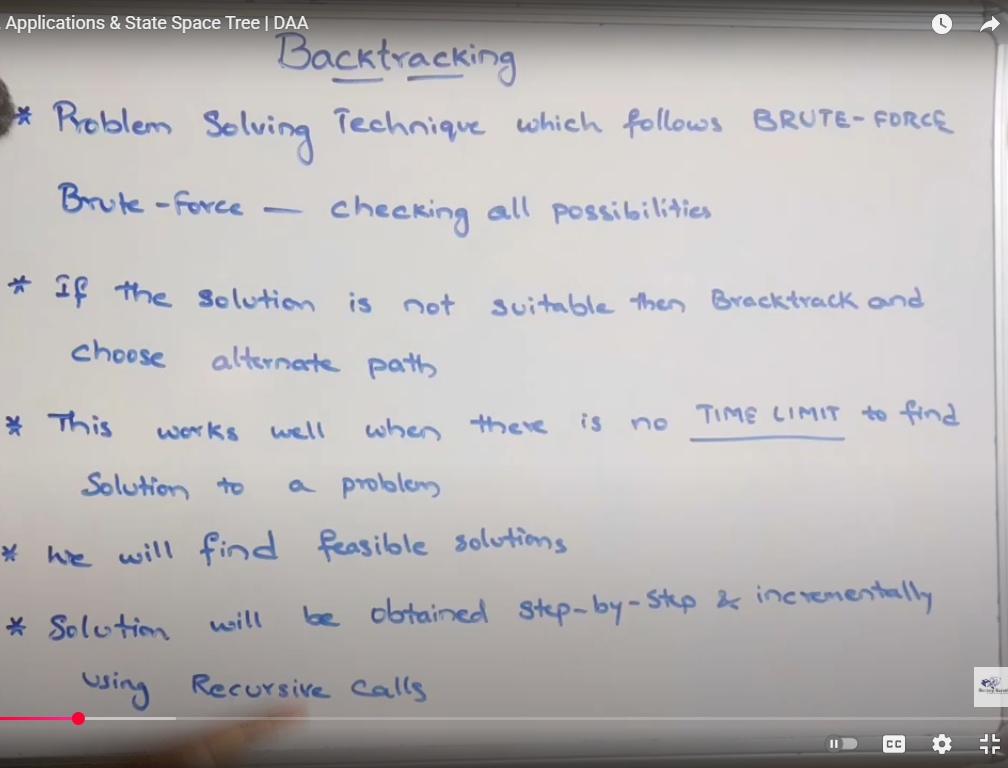 Applications & State Space Tree | DAA
Backtracking
* Problem Solving Technique which follows BRUTE-FORCE
Brute-force — checking all possibilities
* If the solution is not suitable then Bracktrack and
choose alternate path
* This works well when there is no TIME LIMIT to find
Solution to a problem
* We will find feasible solutions
* Solution will be obtained step-by-step & incrementally
using Recursive calls
CC